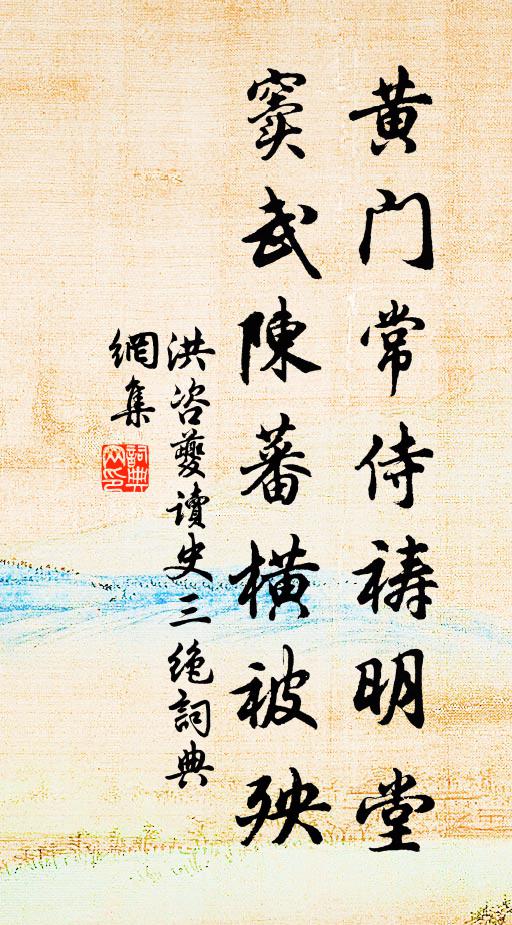 黄门常侍祷明堂
窦武陳蕃横被殃
洪咨夔讀史三绝詞典
網集
詞典
网印